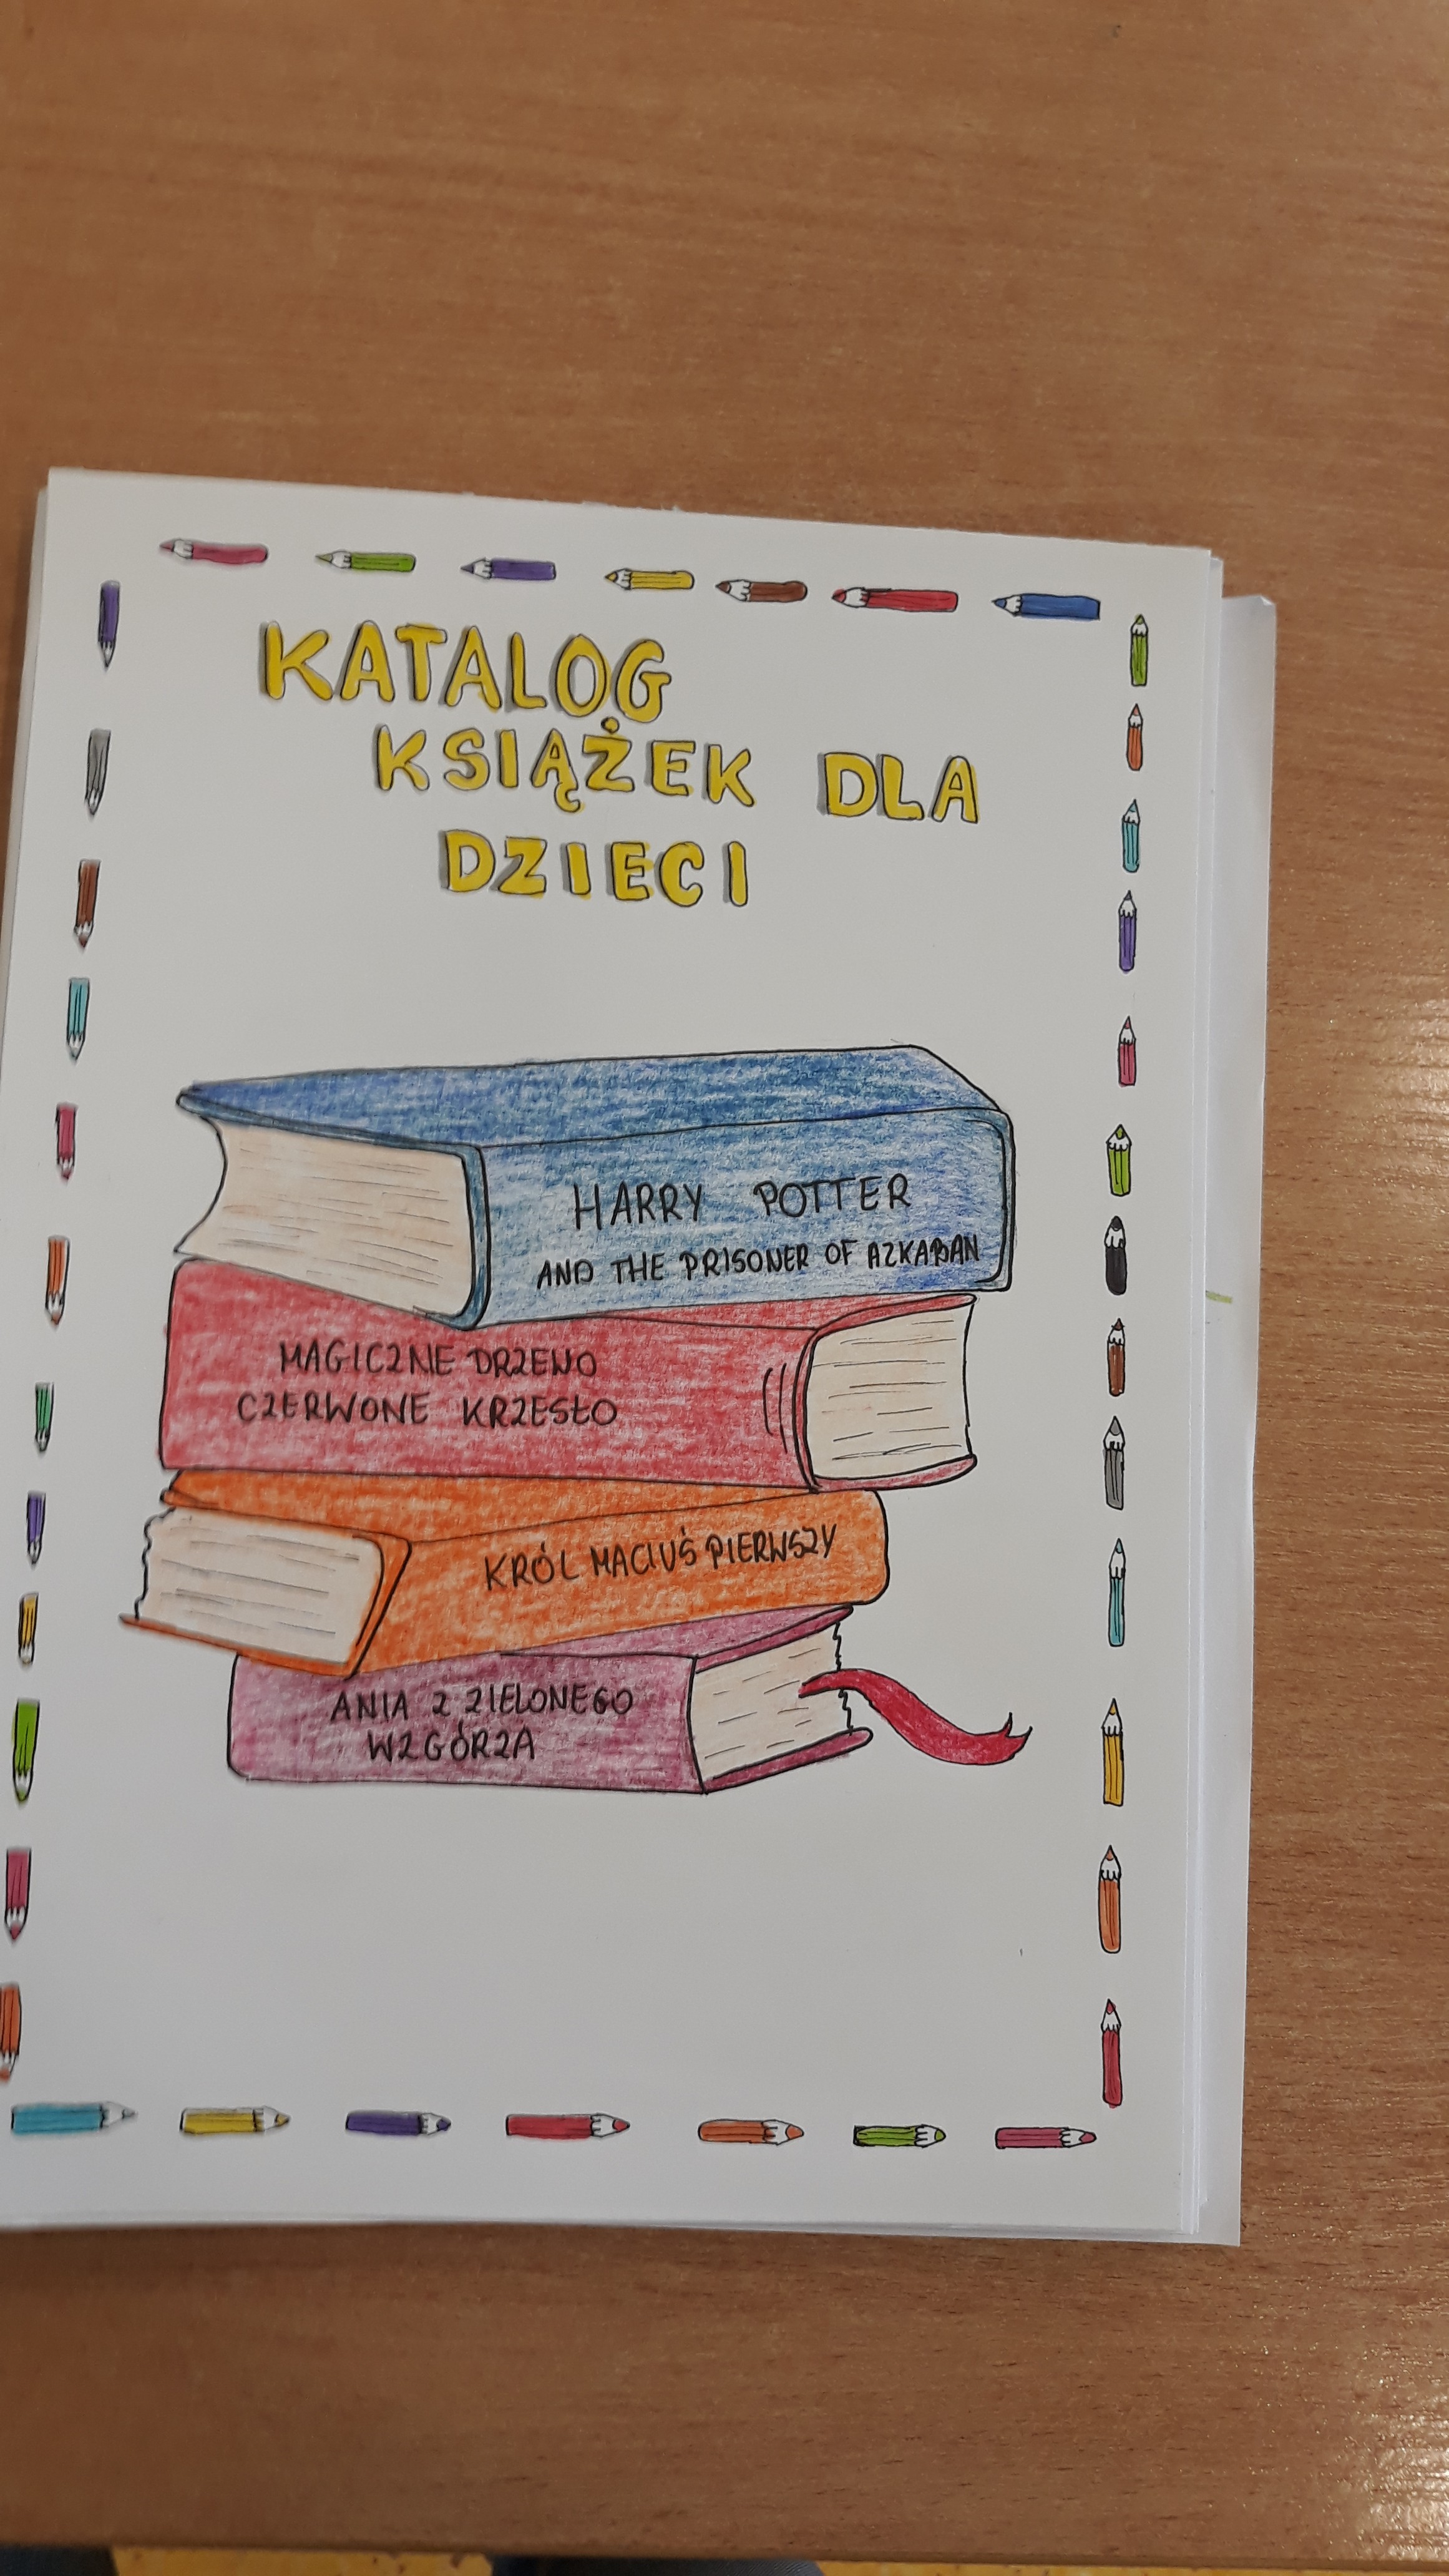 KATALOG
KSIĄŻEK DLA
DZIECI
HARRY POTTER
AND THE PRISONER OF AZKABAN
MAGICZNE DRZEWO
CZERWONE KRZESŁO
KRÓL MACIUŚ PIERWSZY
ANIA Z ZIELONEGO
WZGÓRZA